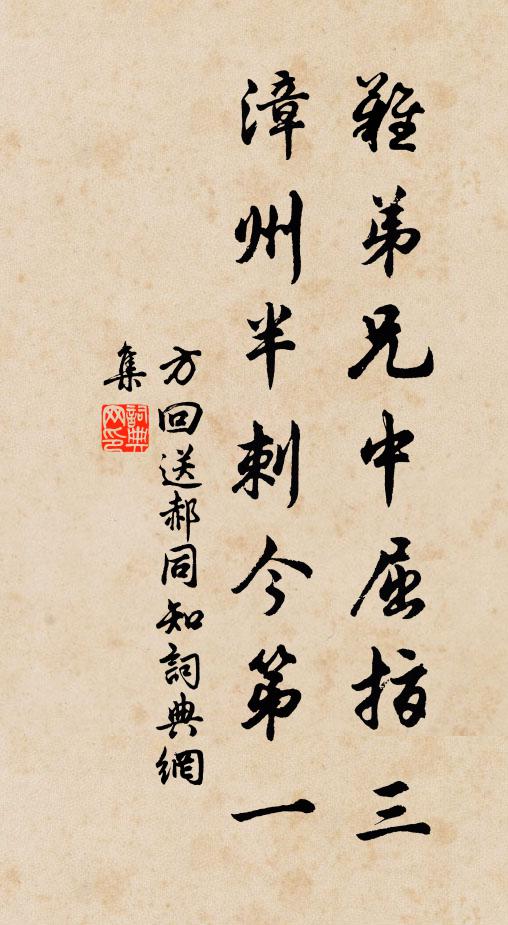 難弟兄中屈指三
漳州半刺今第一
方回送郝同知詞典網
集
詞典
网印